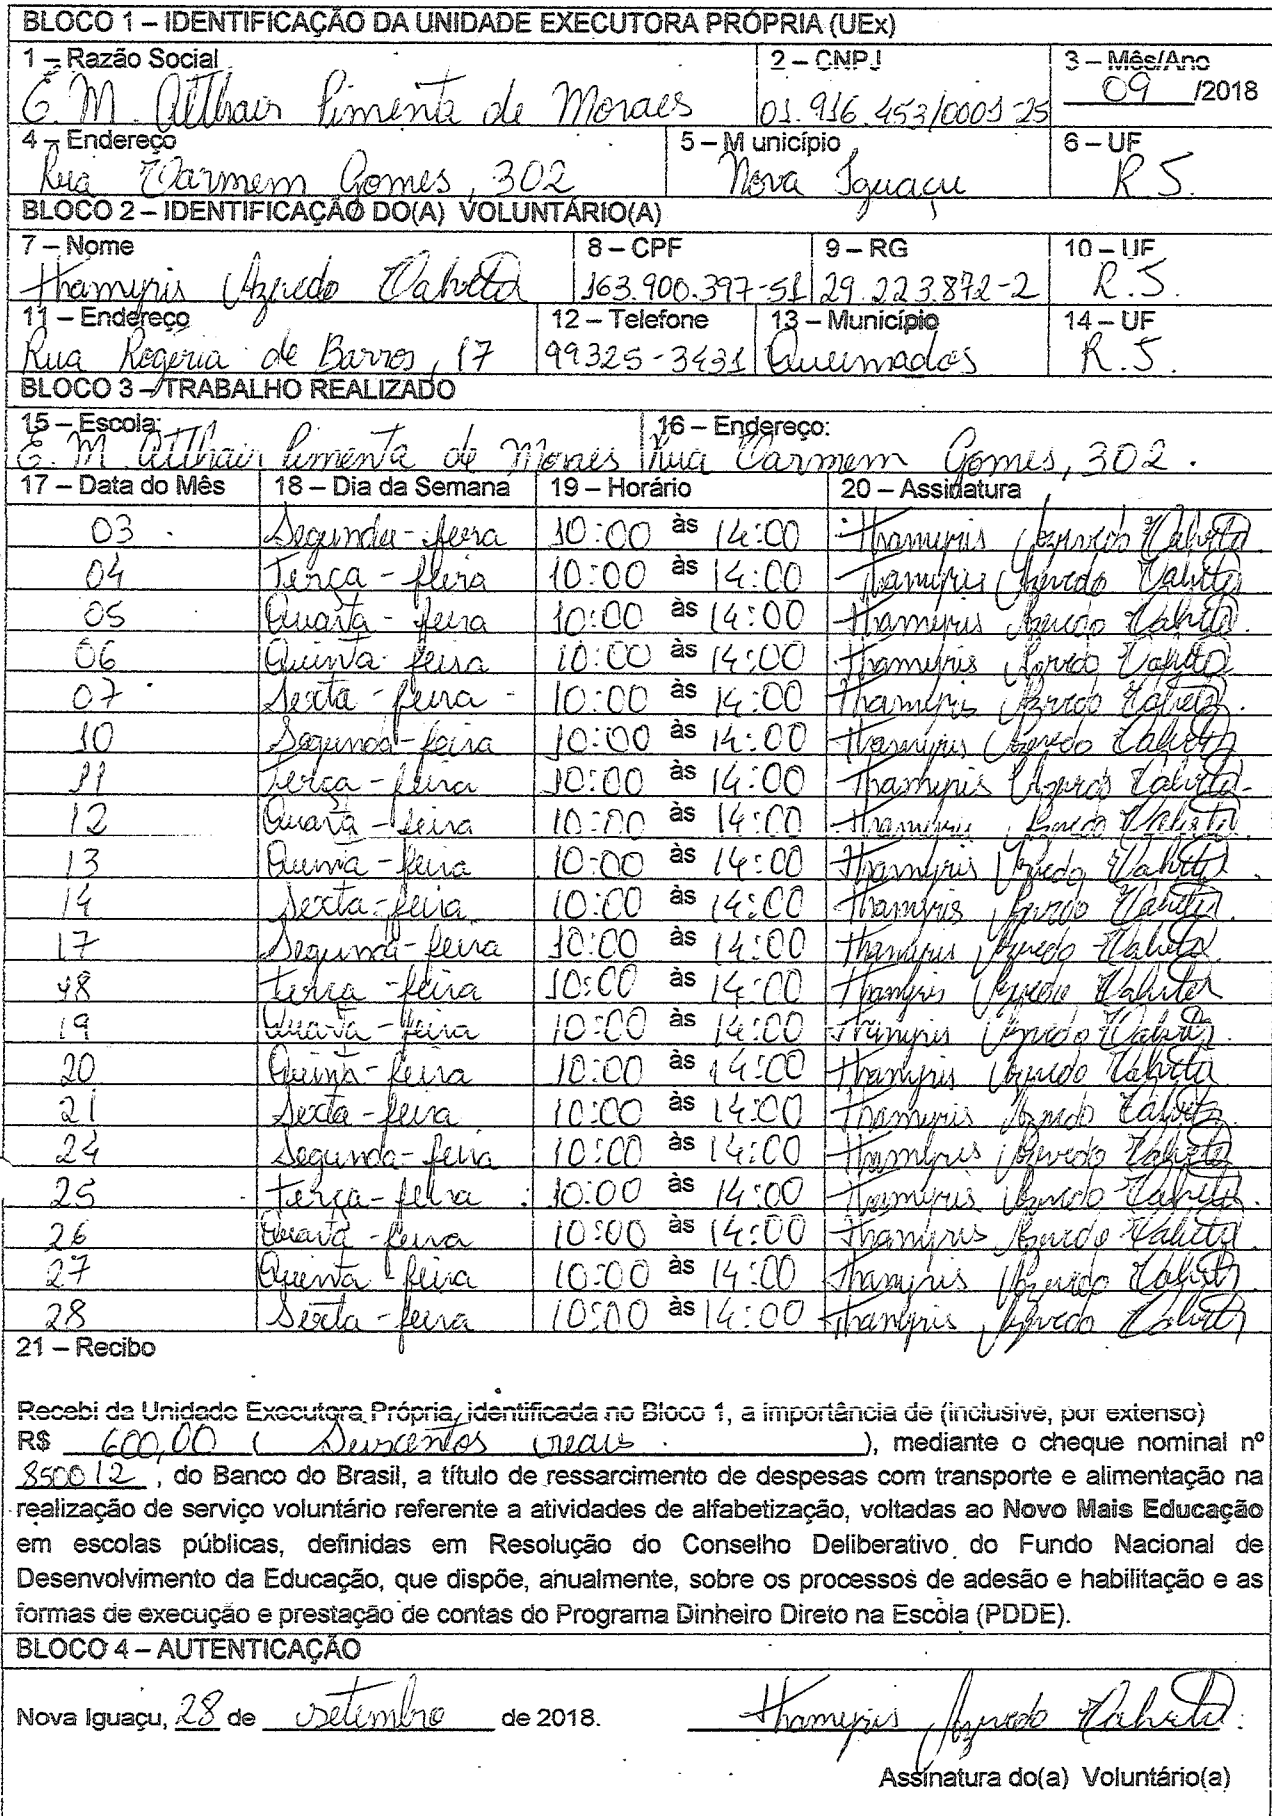 BLOCO 1 – IDENTIFICAÇÃO DA UNIDADE EXECUTORA PRÓPRIA (UEx)
1 – Razão Social 2 – CNPJ 3 – Mês/Ano
E. M. Althair Pimenta de Moraes 01.916.453/0001-25 09 /2018
4 – Endereço 5 – M unicípio 6 – UF
Rua Carmem Gomes, 302 Nova Iguaçu R.J.
BLOCO 2 – IDENTIFICAÇÃO DO(A) VOLUNTÁRIO(A)
7 – Nome 8 – CPF 9 – RG 10 – UF
Thamyris Azeredo 163.900.397-51 29.223.872-2 R.J.
11 – Endereço 12 – Telefone 13 – Município 14 – UF
Rua Rogéria de Barros, 17 99325-3431 Queimados R.J.
BLOCO 3 – TRABALHO REALIZADO
15 – Escola: 16 – Endereço:
E. M. Althair Pimenta de Moraes Rua Carmem Gomes, 302.
17 – Data do Mês 18 – Dia da Semana 19 – Horário 20 – Assinatura
03 Segunda-feira 10:00 às 14:00 Thamyris Azeredo
04 Terça-feira 10:00 às 14:00 Thamyris Azeredo
05 Quarta-feira 10:00 às 14:00 Thamyris Azeredo
06 Quinta-feira 10:00 às 14:00 Thamyris Azeredo
07 Sexta-feira 10:00 às 14:00 Thamyris Azeredo
10 Segunda-feira 10:00 às 14:00 Thamyris Azeredo
11 Terça-feira 10:00 às 14:00 Thamyris Azeredo
12 Quarta-feira 10:00 às 14:00 Thamyris Azeredo
13 Quinta-feira 10:00 às 14:00 Thamyris Azeredo
14 Sexta-feira 10:00 às 14:00 Thamyris Azeredo
17 Segunda-feira 10:00 às 14:00 Thamyris Azeredo
18 Terça-feira 10:00 às 14:00 Thamyris Azeredo
19 Quarta-feira 10:00 às 14:00 Thamyris Azeredo
20 Quinta-feira 10:00 às 14:00 Thamyris Azeredo
21 Sexta-feira 10:00 às 14:00 Thamyris Azeredo
24 Segunda-feira 10:00 às 14:00 Thamyris Azeredo
25 Terça-feira 10:00 às 14:00 Thamyris Azeredo
26 Quarta-feira 10:00 às 14:00 Thamyris Azeredo
27 Quinta-feira 10:00 às 14:00 Thamyris Azeredo
28 Sexta-feira 10:00 às 14:00 Thamyris Azeredo
21 – Recibo
Recebi da Unidade Executora Própria, identificada no Bloco 1, a importância de (inclusive, por extenso)
R$ 600,00 ( Seiscentos reais ), mediante o cheque nominal nº
850012, do Banco do Brasil, a título de ressarcimento de despesas com transporte e alimentação na
realização de serviço voluntário referente a atividades de alfabetização, voltadas ao Novo Mais Educação
em escolas públicas, definidas em Resolução do Conselho Deliberativo do Fundo Nacional de
Desenvolvimento da Educação, que dispõe, anualmente, sobre os processos de adesão e habilitação e as
formas de execução e prestação de contas do Programa Dinheiro Direto na Escola (PDDE).
BLOCO 4 – AUTENTICAÇÃO
Nova Iguaçu, 28 de setembro de 2018. Thamyris Azeredo
Assinatura do(a) Voluntário(a)